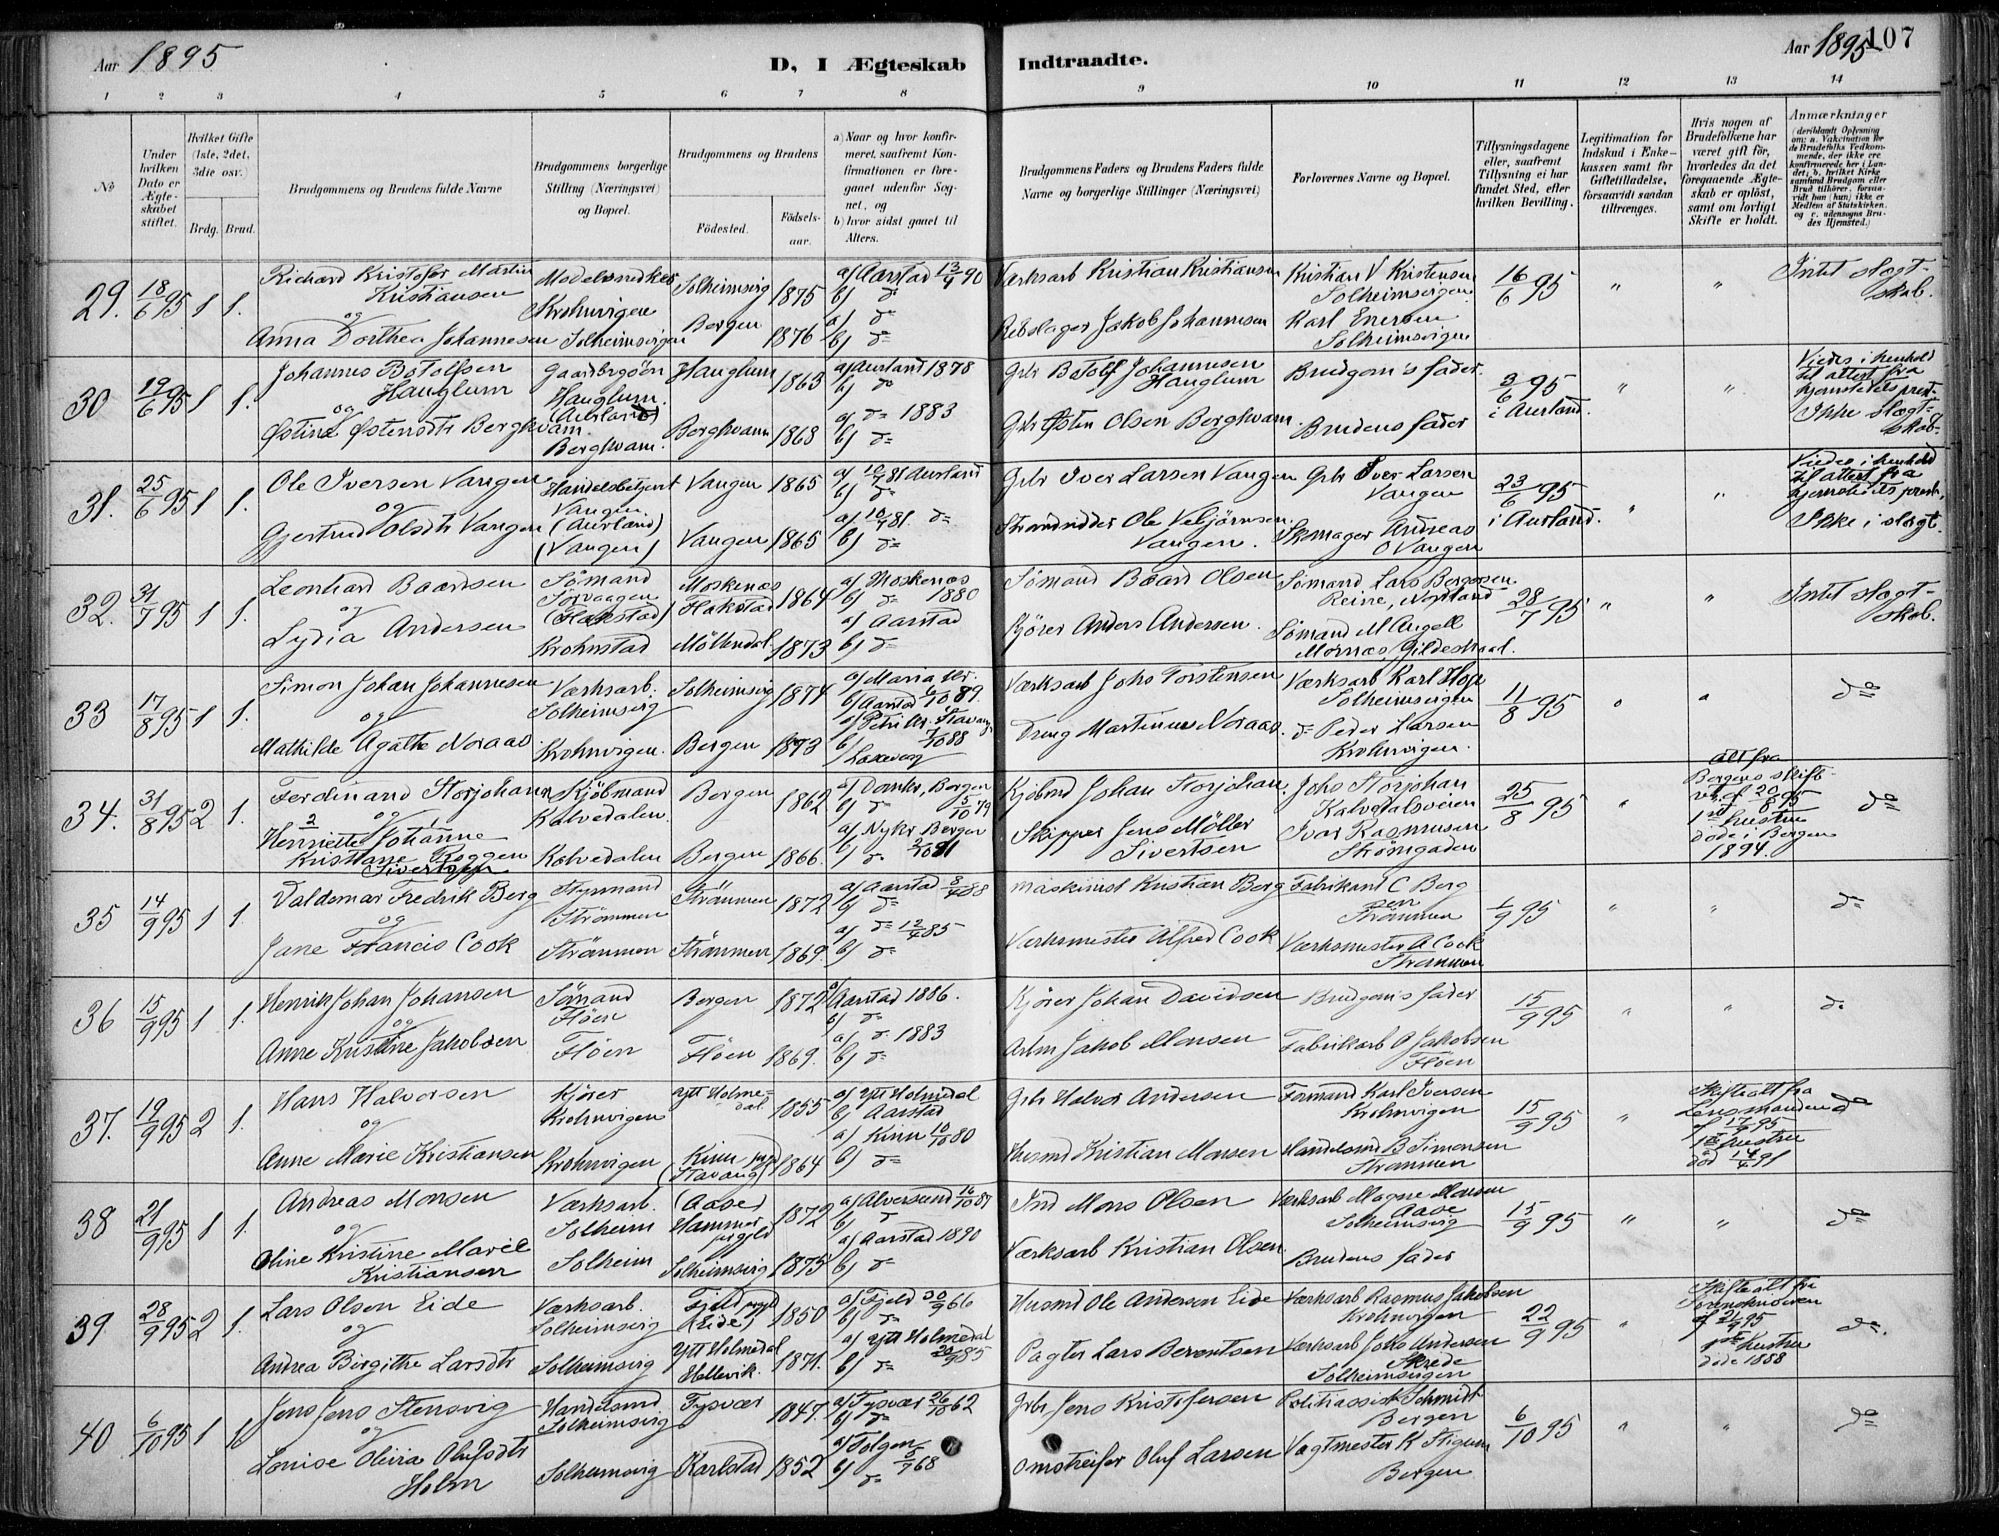 Aar 1895
D, I Ægteskab Indtraadte.
Aar 1895
107
1 2 3 4 5 6 7 8 9 10 11 12 13 14
No
Under hvilken Dato er Ægteskabet stiftet.
Hvilket Gifte (1ste, 2det, 3die osv.)
Brdg. Brud.
Brudgommens og Brudens fulde Navne
Brudgommens borgerlige Stilling (Næringsvei) og Bopæl.
Brudgommens og Brudens
Födested.
Födselsaar.
a) Naar og hvor konfirmeret, saafremt Konfirmationen er foregaaet udenfor Sognet, og
b) hvor sidst gaaet til Alters.
Brudgommens Faders og Brudens Faders fulde Navne og borgerlige Stillinger (Næringsvei)
Forlovernes Navne og Bopæl.
Tillysningsdagene eller, saafremt Tillysning ei har fundet Sted, efter hvilken Bevilling.
Legitimation for Indskud i Enkekassen samt for Giftetilladelse, forsaavidt saadan tiltrænges.
Hvis nogen af Brudefolkene har været gift för, hvorledes da det foregaaende Ægteskab er oplöst, samt om lovligt Skifte er holdt.
Anmærkninger
(deriblandt Oplysning om: a. Vakcination for de Brudefolks Vedkommende, der ikke ere konfirmerede her i Landet; b. hvilket Kirkesamfund Brudgom eller Brud tilhörer, forsaavidt han (hun) ikke er Medlem af Statskirken, og c. udensogns Brudes Hjemsted.)
29. 18/6 95 1 1. Richard Kristofer Martin Kristiansen Modelsnedker Krohnvigen Solheimsvig 1875 a) Aarstad 13/4 90 b) d= Værksarb Kristian Kristiansen Kristian V Kristensen Solheimsvigen 16/6 95 " " Intet slægtskab.
og
Anna Dorthea Johannesen Solheimsvigen Bergen 1876 a) d= b) d= Rebslager Jakob Johannesen Karl Enersen Solheimsvigen
30 19/6 95 1 1. Johannes Botolfsen Hauglum Gaardbrgsön Hauglum. (Aurland) Hauglum 1865 a) Aurland 1878 b) d= Gbr Botolf Johannesen Hauglum Brudgom's fader. 3/6 95 i Aurland. " " Viedes i henhold til attest fra hjemstedets prest. Ikke slægtskab.
og
Østine Østensdtr Bergkvam Berghvam. Berghvam 1868 a) d= 1883 b) d= Gbr Østen Olsen Berghvam Brudens fader
31. 25/6 95 1 1. Ole Iversen Vangen Handelsbetjent Vangen. (Aurland) Vangen 1865 a) 10/4 81 Aurland b) d= Gbr Iver Larsen Vangen Gbr Iver Larsen Vangen 23/6 95 i Aurland. " " Viedes i henhold til attest fra hjemstedets prest. Ikke i slægt.
og
Gjertrud Olsdtr Vangen (Vangen) Vangen 1865 a) 10/4 81. d= b) d= Strandsidder Ole Vebjörnsen Vangen. Skomager Andreas O Vangen
32. 31/7 95 1 1. Leonhard Baardsen Sömand Sörvaagen (Flakstad) Moskenæs Flakstad 1864 a) Moskenæs 1880 b) d= Sömand Baard Olsen Sömand Lars Bergersen Reine, Nordland 28/7 95 " " Intet slægtskab.
og
Lydia Andersen Krohnstad Möllendal. 1873 a) Aarstad b) d= Kjörer Anders Andersen. Sömand M Angell Mornæs, Gildeskaal.
33 17/8 95 1 1. Simon Johan Johannesen Værksarb. Solheimsvig Solheimsvig 1874 a) Maria kr. b) Aarstad 6/10 89. Værksarb Johs Torstensen Værksarb Karl Hope Solheimsvigen 11/8 95 " " d=
og
Mathilde Agathe Noraas Krohnvigen. Bergen 1873 a) Petri kr. Stavanger 7/10 88 b) Laxevaag Dreng Martinus Noraas. d= Peder Larsen Krohnvigen.
34. 31/8 95 2 1. Ferdinand Storjohann Kjöbmand Kalvedalen. Bergen 1862 a) Domkr, Bergen 5/10 79 b) d= Kjöbmd Johan Storjohan Johs Storjohan Kalvedalsveien 25/8 95 " alt fra Bergens skifteret af 20/8 95 1ste hustru döde i Bergen 1894. d=
og
Henriette Johanne Kristiane Roggen Sivertsen Kalvedalen Bergen 1866. a) Nykr Bergen 2/10 81 b) d= Skipper Jens Möller Sivertsen Ivar Rasmusen Strömgaden
35 14/9 95 1 1 Valdemar Fredrik Berg Styrmand Strömmen Strömmen 1872 a) Aarstad 8/4 88 b) d= Maskinist Kristian Berg Fabrikant C Berg sen Strömmen 1/9 95 " " d=
og
Jane Francis Cook Strömmen Strömmen 1869. a) d= 12/4 85 b) d= Værksmester Alfred Cook Værksmester A Cook Strømmen
36 15/9 95 1 1. Henrik Johan Johansen Sömand Flöen Bergen 1872 a) Aarstad 1886. b) d= Kjörer Johan Davidsen Brudgom's fader 15/9 95 " " d.
og
Anne Kristine Jakobsen Flöen Flöen 1869. a) d= 1883 b) d= Arbm Jakob Monsen Fabrikarb O Jakobsen Flöen
37. 19/9 95 2 1. Hans Halvorsen Kjörer Krohnvigen Ytt Holmedal 1855 a) Ytt Holmedal b) Aarstad Gbr Halvor Andersen Formand Karl Iversen Krohnvigen 15/9 95 " Skifteatt fra Lensmanden af 17/9 95 1ste hustru död 14/4 91 d=
og
Anne Marie Kristiansen Krohnvigen (Kinn prgjd Stavang) 1864 a) Kinn 10/10 80 b) d= Husmd Kristian Monsen Handelsmd B Simonsen Strømmen
38 21/9 95 1 1. Andreas Monsen Værksarb. Solheim (Aase) Hammer prgjld 1872 a) Alversund 16/10 87 b) d= Ind Mons Olsen Værksarb Magne Monsen Aase Solheimsvig 15/9 95 " " d=
og
Oline Kristine Marie Kristiansen Solheim Solheimsvig 1875 a) Aarstad 1890 b) d= Værksarb Kristian Olsen Brudens fader
39 28/9 95 2 1. Lars Olsen Eide Værksarb. Solheimsvig Fjeld prgd (Eide) 1850 a) Fjeld 30/9 66 b) d= Husmd Ole Andersen Eide Værksarb Rasmus Jakobsen Krohnvigen 22/9 95 " Skifteatt fra Sorenskriveren af 21/9 95 1ste hustru döde 1888 d=.
og
Andrea Birgithe Larsdtr Solheimsvig Ytt Holmedal Hellevik. 1871. a) Ytt Holmedal 20/9 85 b) d= Pagter Lars Berentsen Værksarb Johs Andersen Skrede Solheimsvigen
40 6/10 95 1 1 Jens Jens Stensvig Handelsmd Solheimsvig Tysvær 1847. a) Tysvær 26/10 62 b) d= Gbr Jens Kristofersen Politiassist Schmidt Bergen 6/10 95 " " d=
og
Louise Olivia Olufsdtr Holm Solheimsvig Karlstad 1852 a) Tolgen 5/9 68 b) d= Omstreifer Oluf Larsen Vagtmester K Stigum Bergen